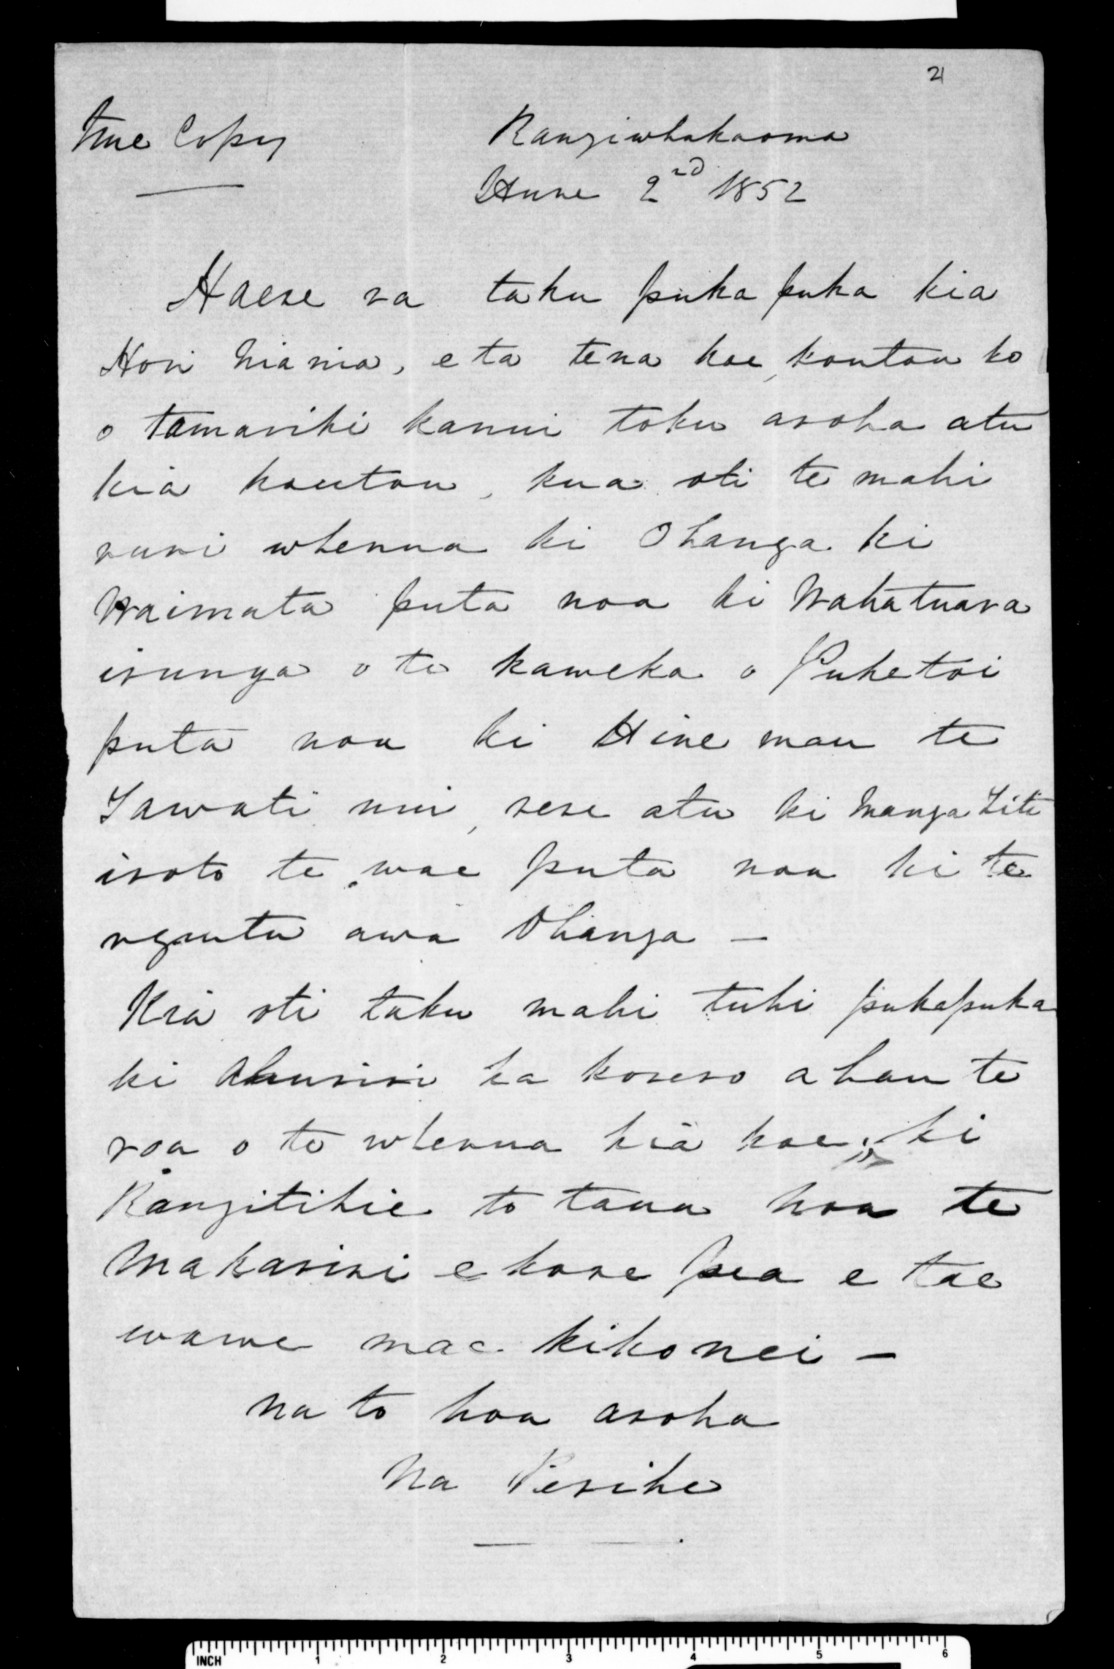 21
True Copy
Rangiwhakaoma
Hune 2nd 1852
Haere ra taku pukapuka kia
Hori Niania, e ta tena koe, koutou ko
o tamariki kanui toku aroha atu
kia koutou, kua oti te mahi
ruri whenua ki Ohanga ki
Waimata puta noa ki Wahatuara
irunga o te kaweka o Puketoi
puta noa ki Hine mau te
Tawati nui, rere atu ki Manga Titi
iroto te wae puta noa ki te
ngutu awa Ohanga —
Kia oti taku mahi tuhi pukapuka
ki Ahuriri ka korero ahau te
roa o te whenua kia koe; ki
Rangitihie to taua hoa te
Makariri e kore pea e tae
wawe mae kikonei —
na to hoa aroha
Na Perihe